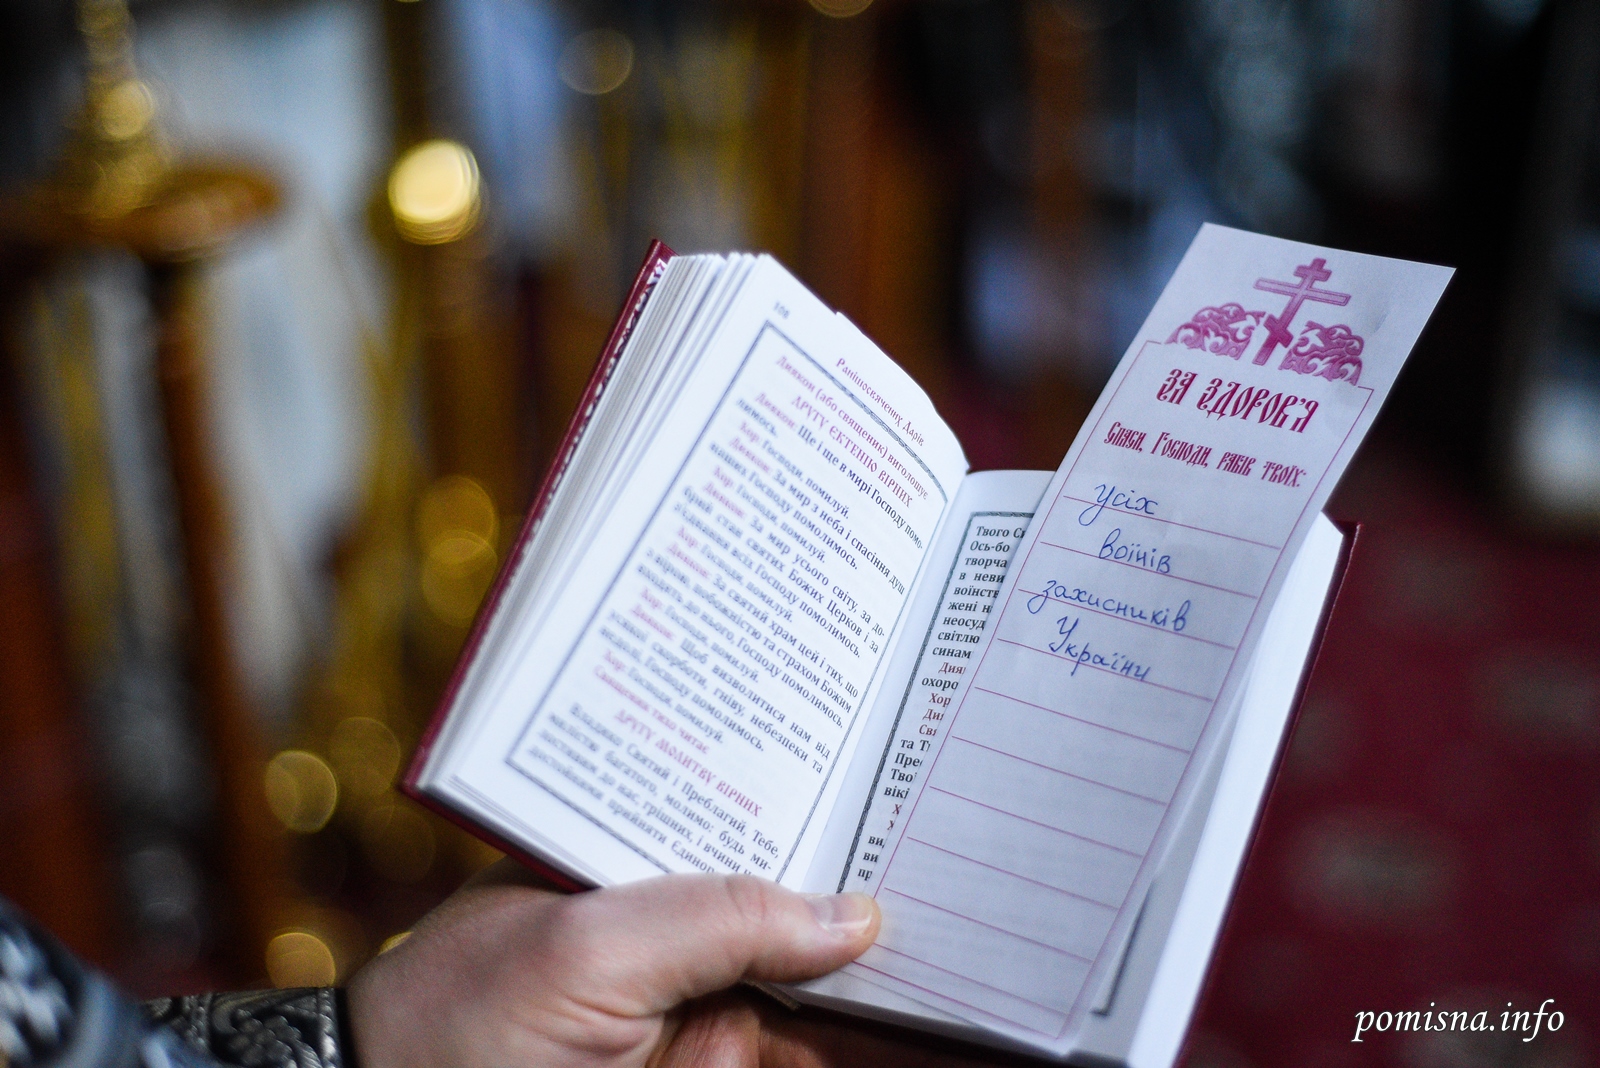 108
Ранішосвячених Дарів.
Диякон (або священик) виголошує
ДРУГУ ЄКТЕНІЮ ВІРНИХ
Диякон: Ще і ще в мирі Господу помо-
лимось.
Хор: Господи, помилуй.
Диякон: За мир з неба і спасіння душ
наших Господу помолимось.
Хор: Господи, помилуй.
Диякон: За мир усього світу, за до-
брий стан святих Божих Церков і за
з'єднання всіх Господу помолимось.
Хор: Господи, помилуй.
Диякон: За святий храм цей і тих, що
з вірою, побожністю та страхом Божим
входять до нього, Господу помолимось.
Хор: Господи, помилуй.
Диякон: Щоб визволитися нам від
усякої скорботи, гніву, небезпеки та
недолі, Господу помолимось.
Хор: Господи, помилуй.
Священик тихо читає
ДРУГУ МОЛИТВУ ВІРНИХ
Владико Святий і Преблагий, Тебе,
милістю багатого, молимо: будь ми-
лостивим до нас, грішних, і вчини
достойними прийняти Єдинор
Твого
Ось-бо
творча
в неви
воїнств
жені н
неосуд
світлю
синам
Дия
охоро
Хор
Дия
Свя
та
Пре
Твої
вікі
Х
ви
пр
ЗА ЗДОРОВ'Я
Спаси, Господи, рабів твоїх:
Усіх
воїнів
захисників
України
pomisna.info